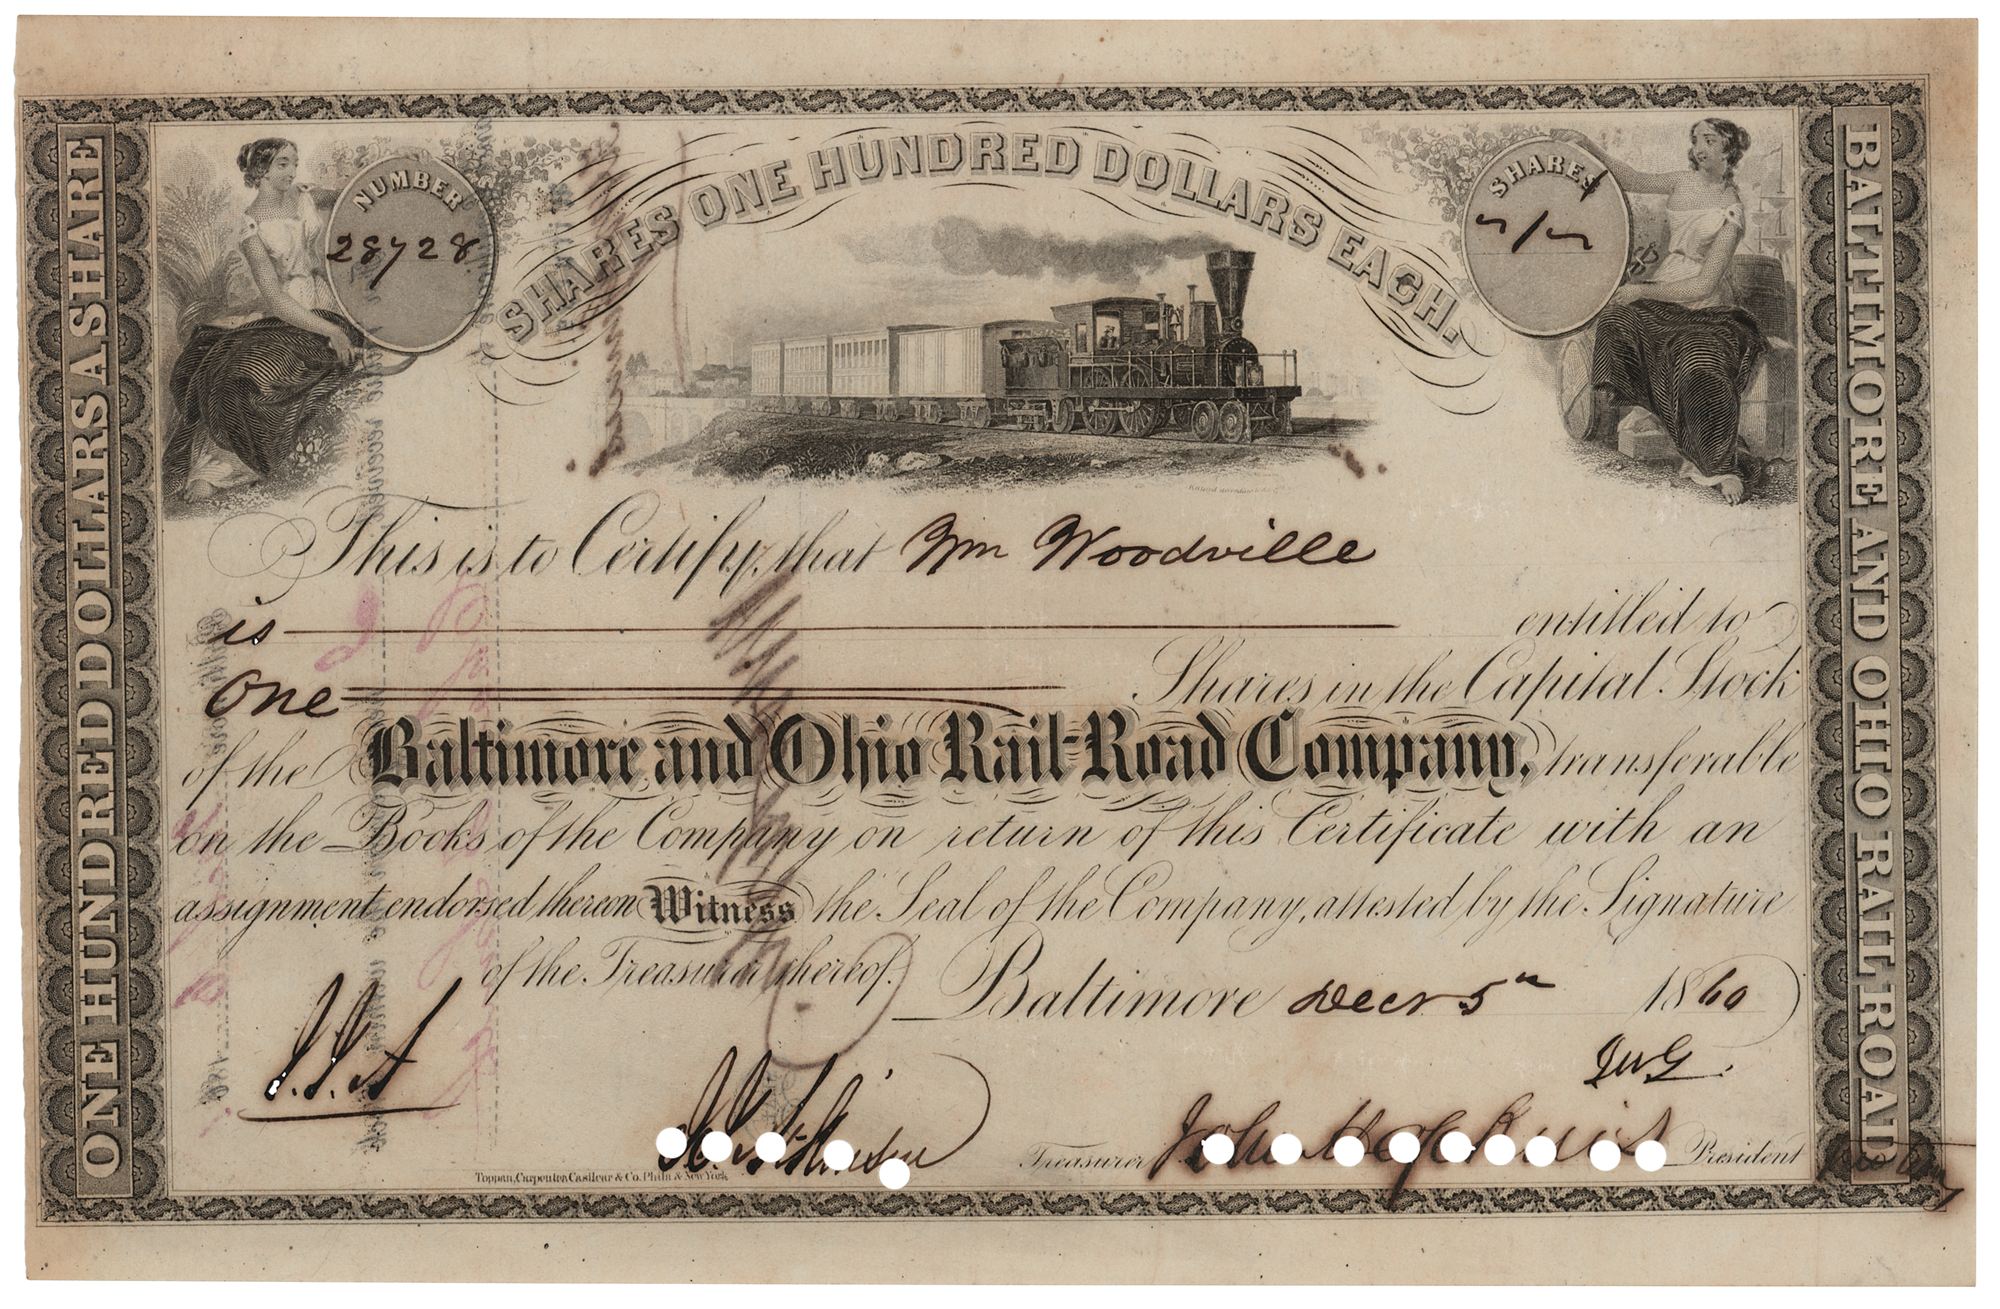 SHARES ONE HUNDRED DOLLARS EACH.
NUMBER
28728
SHARES
ONE HUNDRED DOLLARS A SHARE
BALTIMORE AND OHIO RAILROAD
This is to Certify, that Wm Woodville
is entitled to
One Shares in the Capital Stock
of the Baltimore and Ohio Rail-Road Company, transferable
on the Books of the Company on return of this Certificate with an
assignment endorsed thereon Witness the Seal of the Company, attested by the Signature
of the Treasurer thereof.
Baltimore Decr 5th 1860
JWG.
Treasurer John Hopkins President
Toppan, Carpenter, Casilear & Co. Phila. & New York